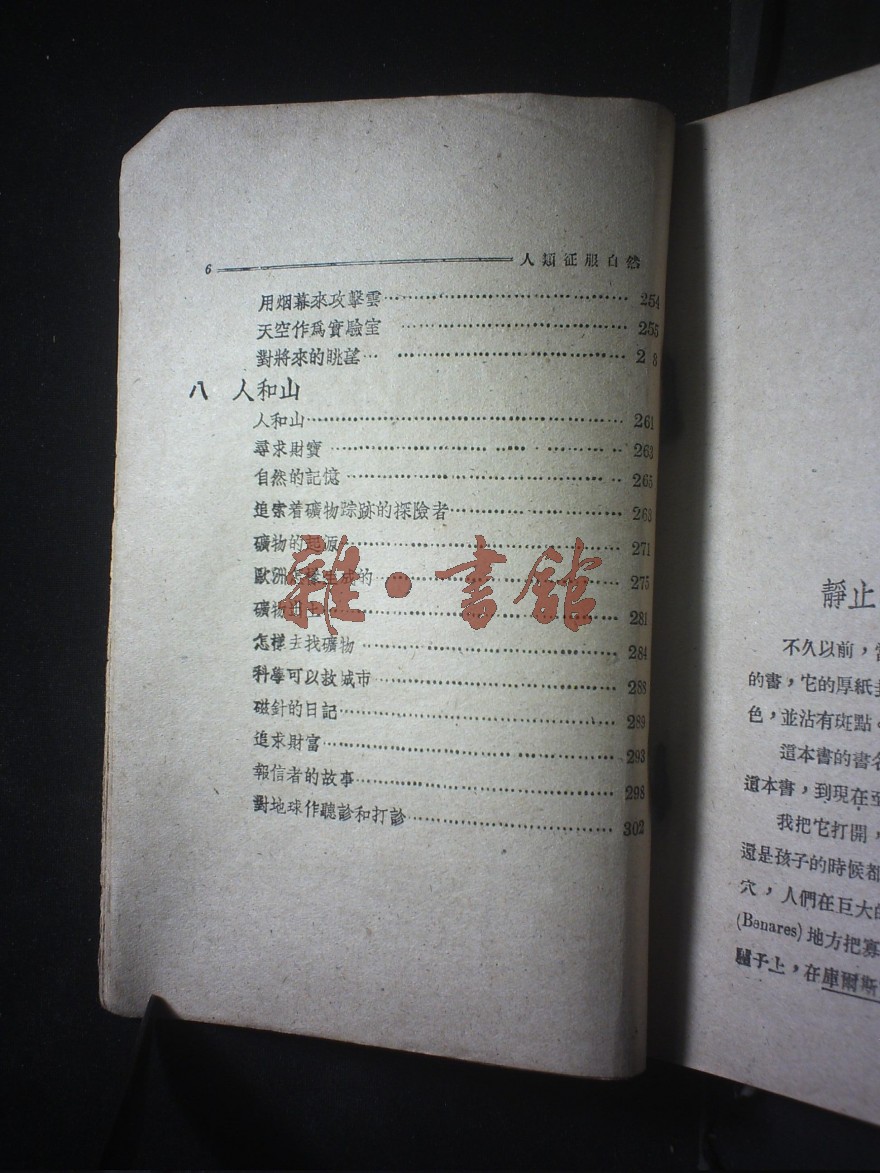 6 人類征服自然
用烟幕來攻擊雲 254
天空作爲實驗室 255
對將來的眺望 2 8
八 人和山
人和山 261
尋求財寶 263
自然的記憶 265
追索着礦物踪跡的探險者 263
礦物的起源 271
歐洲怎樣生成的 275
礦物 281
怎樣去找礦物 284
科學可以救城市 288
磁針的日記 289
追求財富 293
報信者的故事 298
對地球作聽診和打診 302
雜·書館
靜止
不久以前，
的書，它的厚紙
色，並沾有斑點。
這本書的書名
這本書，到現在至
我把它打開，
還是孩子的時候都
穴，人們在巨大的
(Benares)地方把寡
騾子上，在庫爾斯